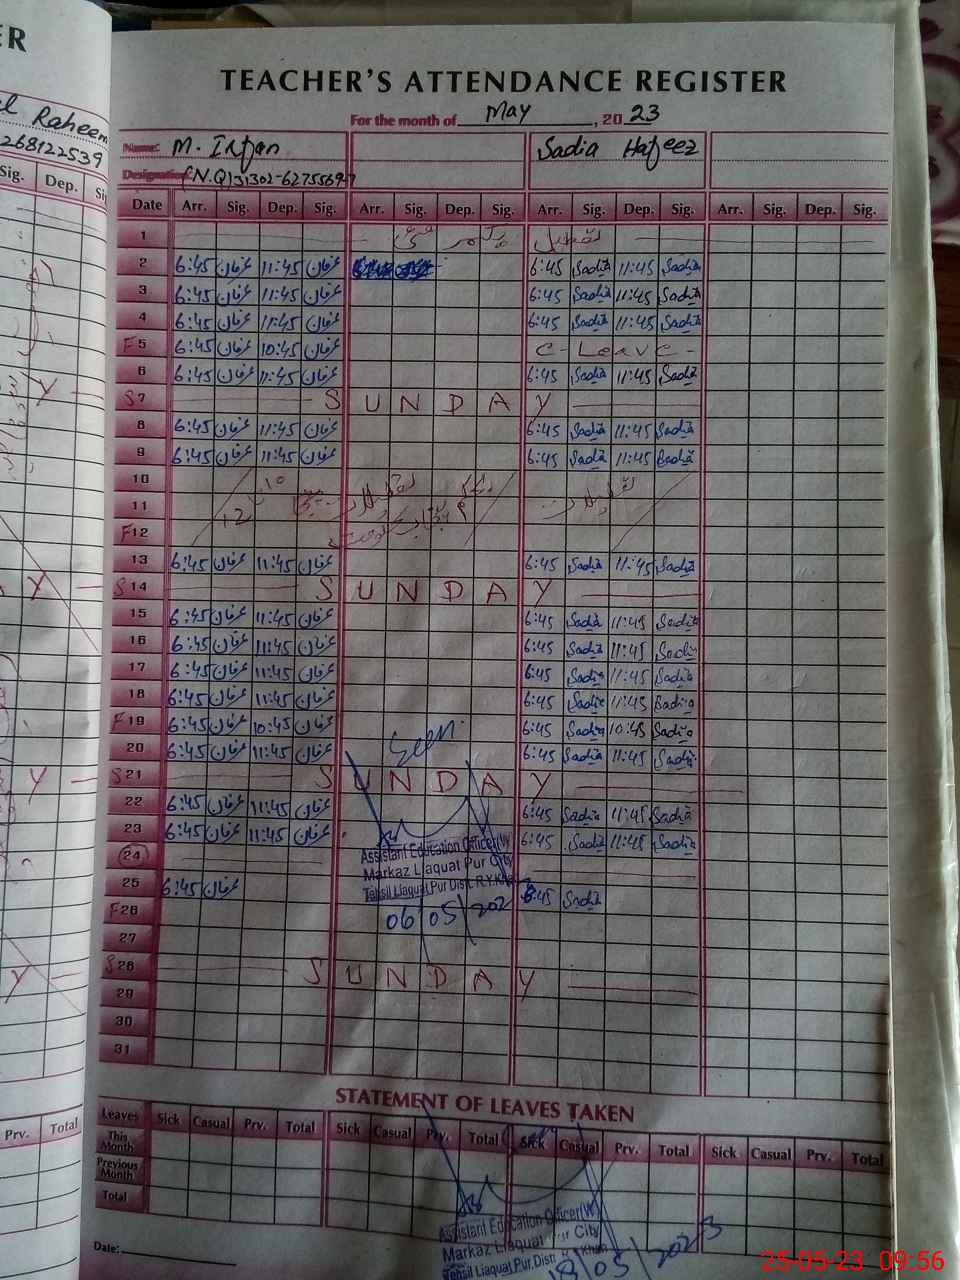 ER
Raheem
268122539
Sig. Dep.
TEACHER'S ATTENDANCE REGISTER
For the month of May, 2023
Name: M. Irfan Sadia Hafeez
Designation (N.Q) 31302-6275569-7
Date Arr. Sig. Dep. Sig. Arr. Sig. Dep. Sig. Arr. Sig. Dep. Sig. Arr. Sig. Dep. Sig.
1 یکم مئی تعطیل
2 6:45 عرفان 11:45 عرفان 6:45 Sadia 11:45 Sadia
3 6:45 عرفان 11:45 عرفان 6:45 Sadia 11:45 Sadia
4 6:45 عرفان 11:45 عرفان 6:45 Sadia 11:45 Sadia
F 5 6:45 عرفان 10:45 عرفان C-Leave-
6 6:45 عرفان 11:45 عرفان 6:45 Sadia 11:45 Sadia
S 7 SUNDAY
8 6:45 عرفان 11:45 عرفان 6:45 Sadia 11:45 Sadia
9 6:45 عرفان 11:45 عرفان 6:45 Sadia 11:45 Sadia
10
11 تعطیلات
F 12
13 6:45 عرفان 11:45 عرفان 6:45 Sadia 11:45 Sadia
S 14 SUNDAY
15 6:45 عرفان 11:45 عرفان 6:45 Sadia 11:45 Sadia
16 6:45 عرفان 11:45 عرفان 6:45 Sadia 11:45 Sadia
17 6:45 عرفان 11:45 عرفان 6:45 Sadia 11:45 Sadia
18 6:45 عرفان 11:45 عرفان 6:45 Sadia 11:45 Sadia
F 19 6:45 عرفان 10:45 عرفان 6:45 Sadia 10:45 Sadia
20 6:45 عرفان 11:45 عرفان Seen 6:45 Sadia 11:45 Sadia
S 21 SUNDAY
22 6:45 عرفان 11:45 عرفان 6:45 Sadia 11:45 Sadia
23 6:45 عرفان 11:45 عرفان 6:45 Sadia 11:45 Sadia
Assistant Education Officer(W)
24
Markaz Liaquat Pur City
25 6:45 عرفان 6:45 Sadia
Tehsil Liaquat Pur Distt. R.Y.Khan
F 26
06/05/202
27
S 28 SUNDAY
29
30
31
STATEMENT OF LEAVES TAKEN
Prv. Total
Leaves Sick Casual Prv. Total Sick Casual Prv. Total Sick Casual Prv. Total Sick Casual Prv. Total
This Month
Previous Month
Total
Assistant Education Officer(W)
Markaz Liaquat Pur City
Tehsil Liaquat Pur Distt. R.Y.Khan
18/05/2023
Date:
25-05-23 09:56